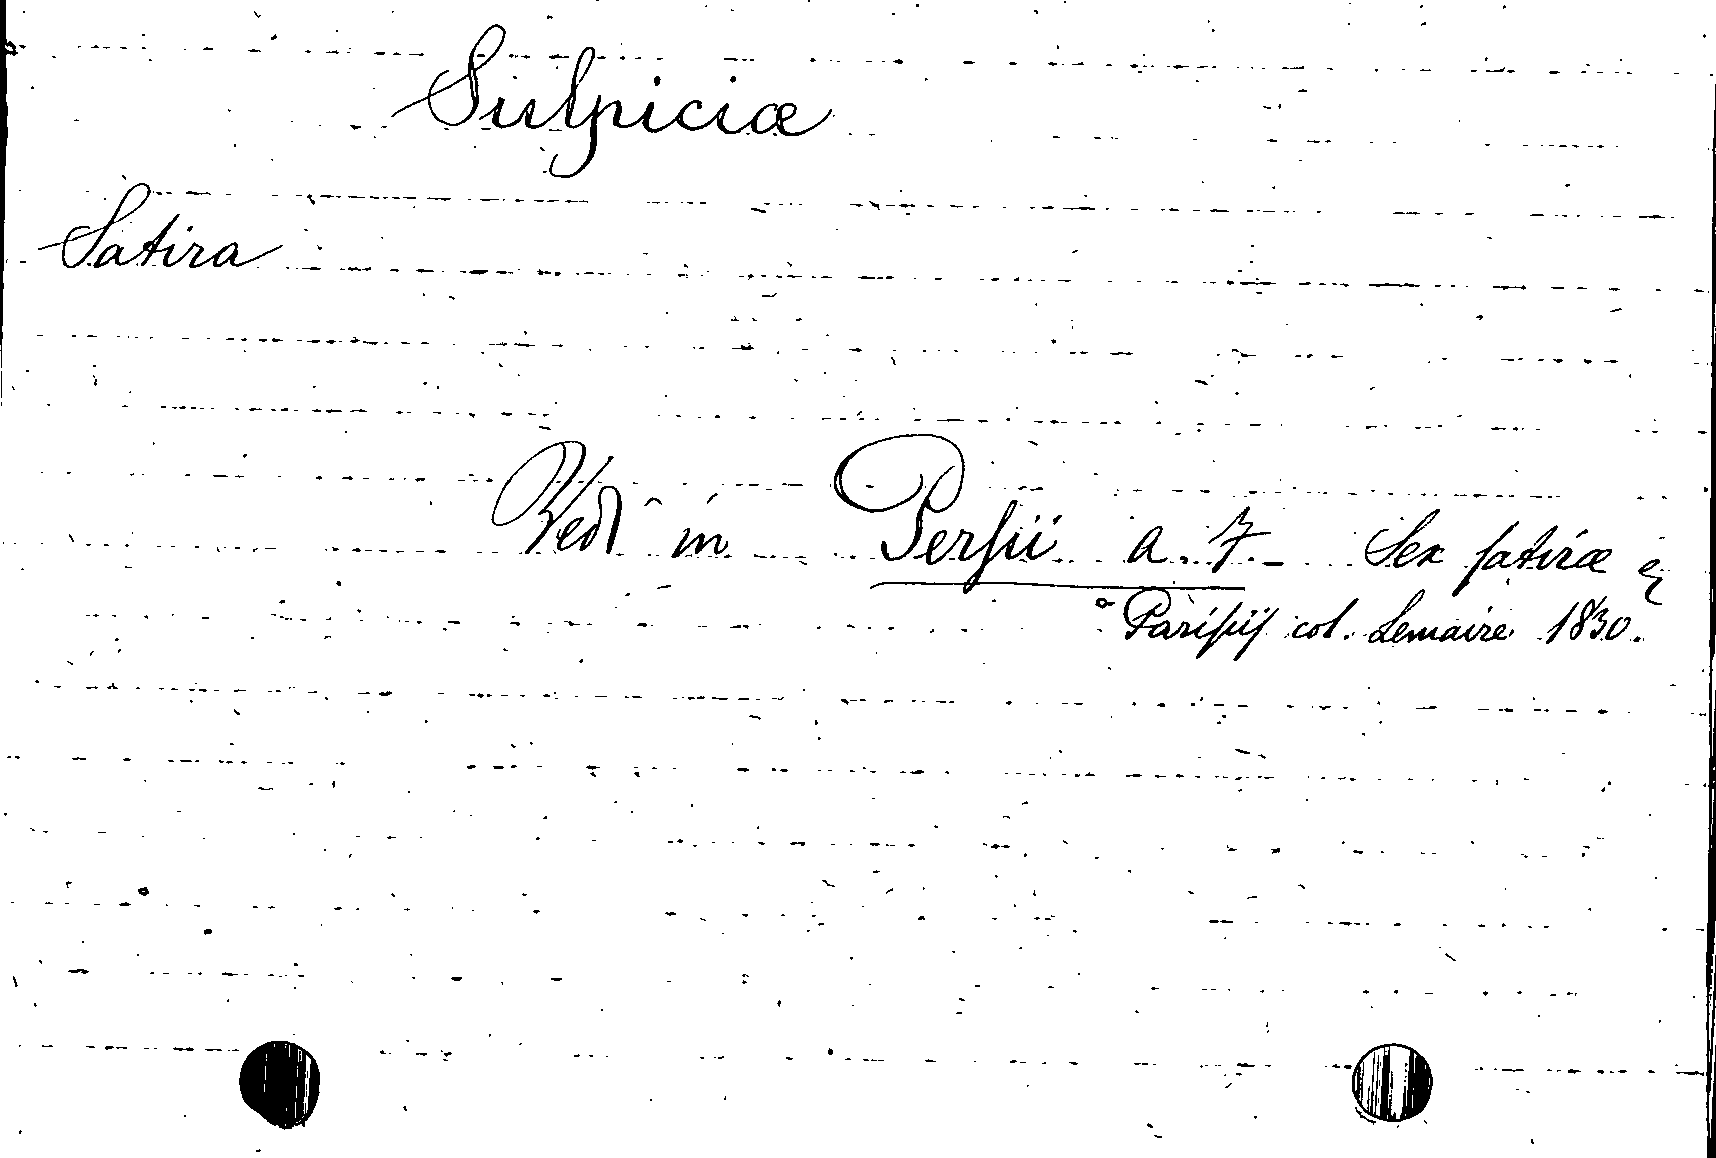 Sulpiciæ
Satira
Vedi in Persii a. 7- Sex satiræ &
Parisiis col. Lemaire 1830.